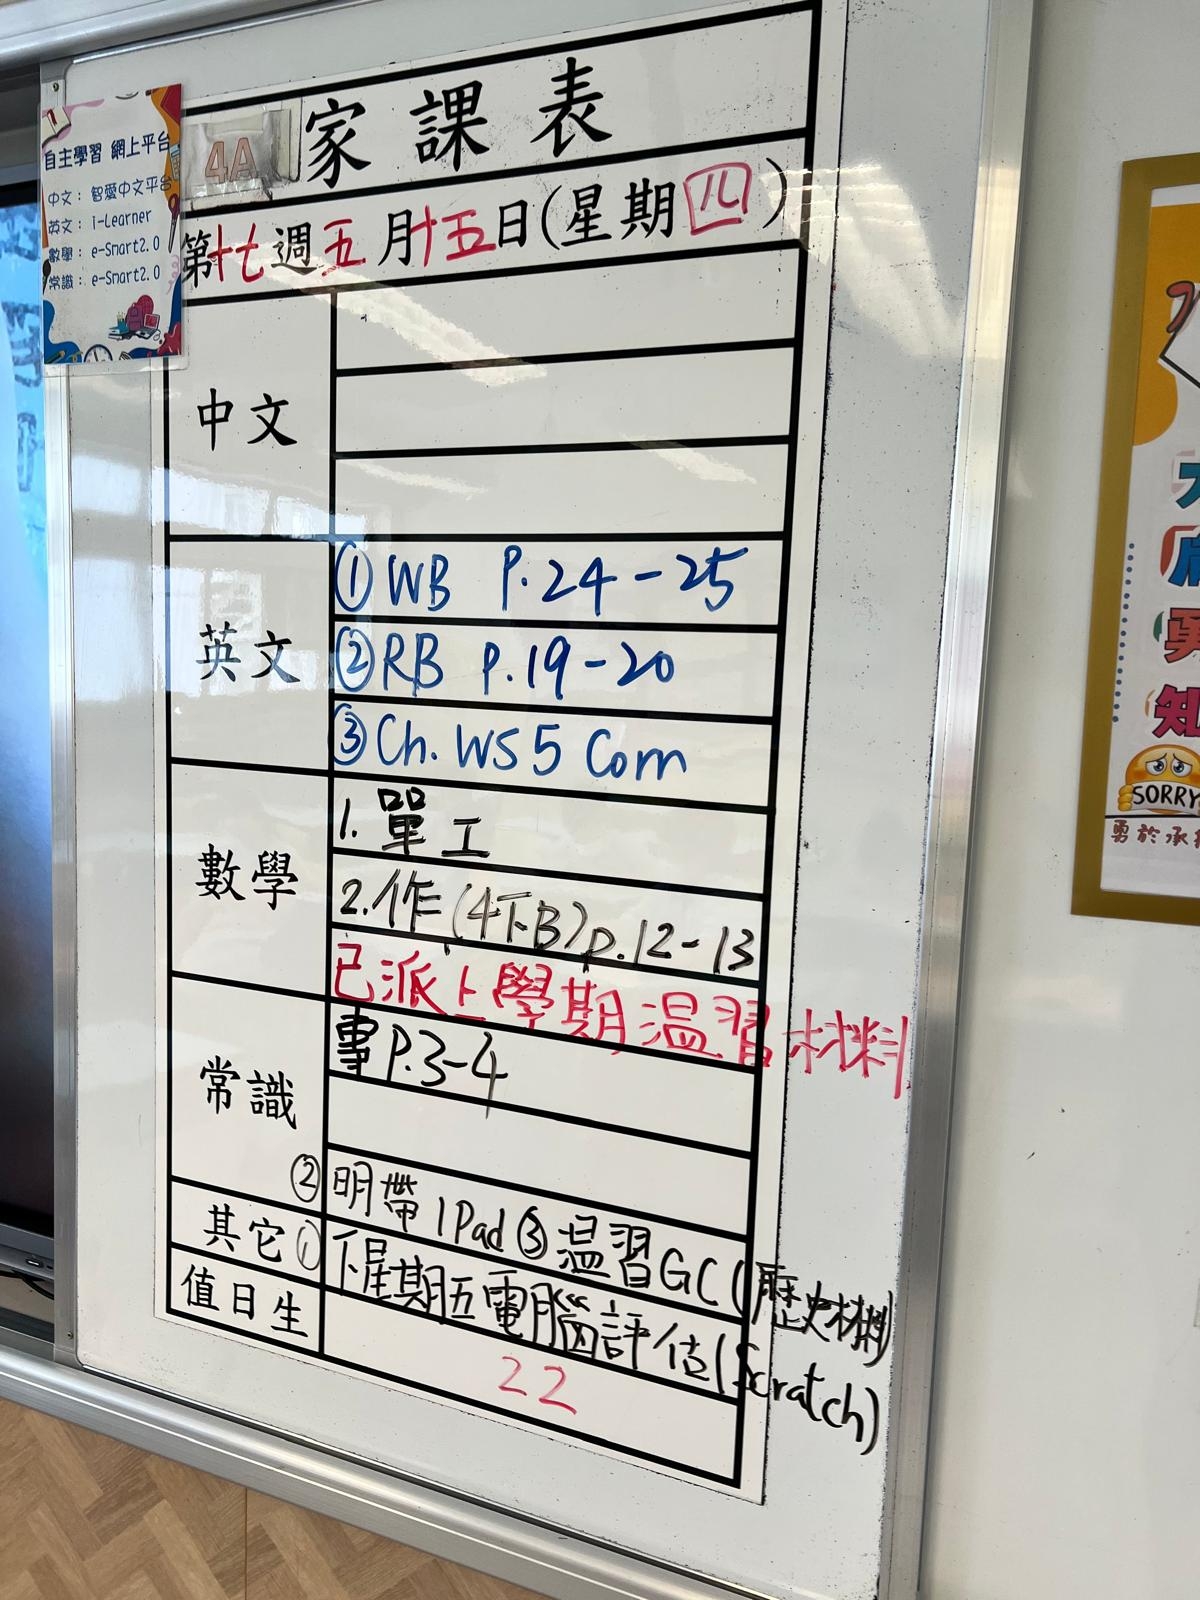 自主學習 網上平台
中文：智愛中文平台
英文：i-Learner
數學：e-Smart2.0
常識：e-Smart2.0
4A 家課表
第十七週五月十五日(星期四)
中文
英文
①WB P.24-25
②RB P.19-20
③Ch. WS 5 Corr
數學
1. 單工
2.作(4下B)p.12-13
已派上學期温習材料
常識
P.3-4
②明帶 iPad ③温習GC(歷史材料)
其它
①下星期五電腦評估(Scratch)
值日生
22
SORRY
勇於承